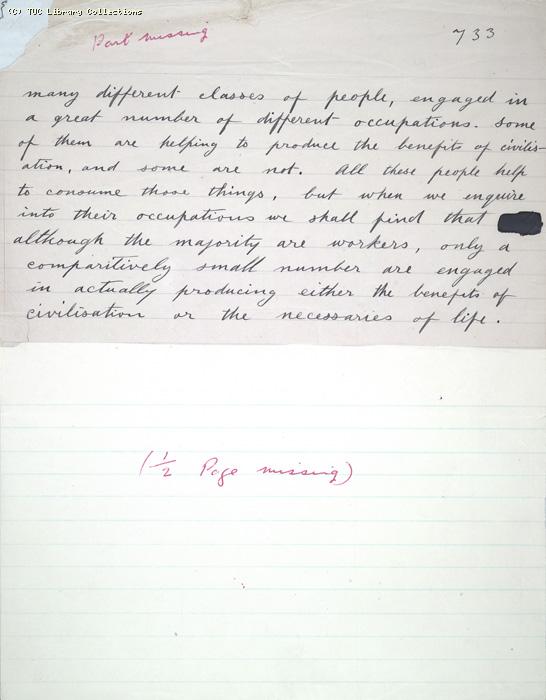 (C) TUC Library Collections
Part missing
733
many different classes of people, engaged in
a great number of different occupations. Some
of them are helping to produce the benefits of civilis-
ation, and some are not. All these people help
to consume those things, but when we enquire
into their occupations we shall find that
although the majority are workers, only a
comparitively small number are engaged
in actually producing either the benefits of
civilisation or the necessaries of life.
(1/2 Page missing)